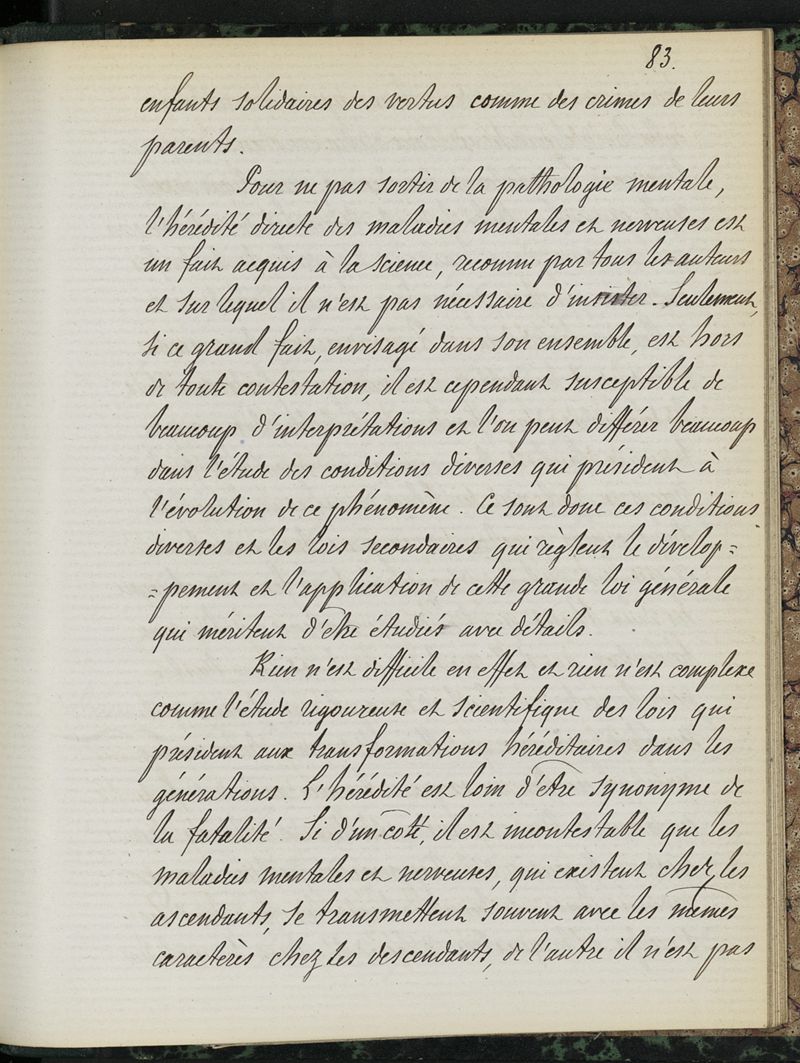 83.
enfants solidaires des vertus comme des crimes de leurs
parents.
Pour ne pas sortir de la pathologie mentale,
l'hérédité directe des maladies mentales et nerveuses est
un fait acquis à la science, reconnu par tous les auteurs
et sur lequel il n'est pas nécessaire d'insister. Seulement,
si ce grand fait, envisagé dans son ensemble, est hors
de toute contestation, il est cependant susceptible de
beaucoup d'interprétations et l'on peut différer beaucoup
dans l'étude des conditions diverses qui président à
l'évolution de ce phénomène. Ce sont donc ces conditions
diverses et les lois secondaires qui règlent le dévelop=
=pement et l'application de cette grande loi générale
qui méritent d'être étudiés avec détails.
Rien n'est difficile en effet et rien n'est complexe
comme l'étude rigoureuse et scientifique des lois qui
président aux transformations héréditaires dans les
générations. L'hérédité est loin d'être synonyme de
la fatalité. Si d'un côté, il est incontestable que les
maladies mentales et nerveuses, qui existent chez les
ascendants, se transmettent souvent avec les mêmes
caractères chez les descendants, de l'autre il n'est pas